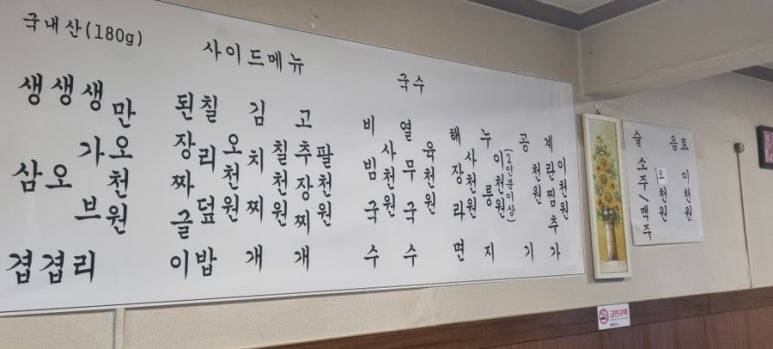 국내산(180g)
생삼겹
생오겹
생가브리
만오천원
사이드메뉴
된장짜글이
칠리덮밥
오천원
김치찌개
칠천원
고추장찌개
팔천원
국수
비빔국수
사천원
열무국수
육천원
해장라면
사천원
누룽지
이천원
(2인분이상)
공기
천원
계란찜추가
이천원
술
소주/맥주
오천원
음료
이천원
금연구역